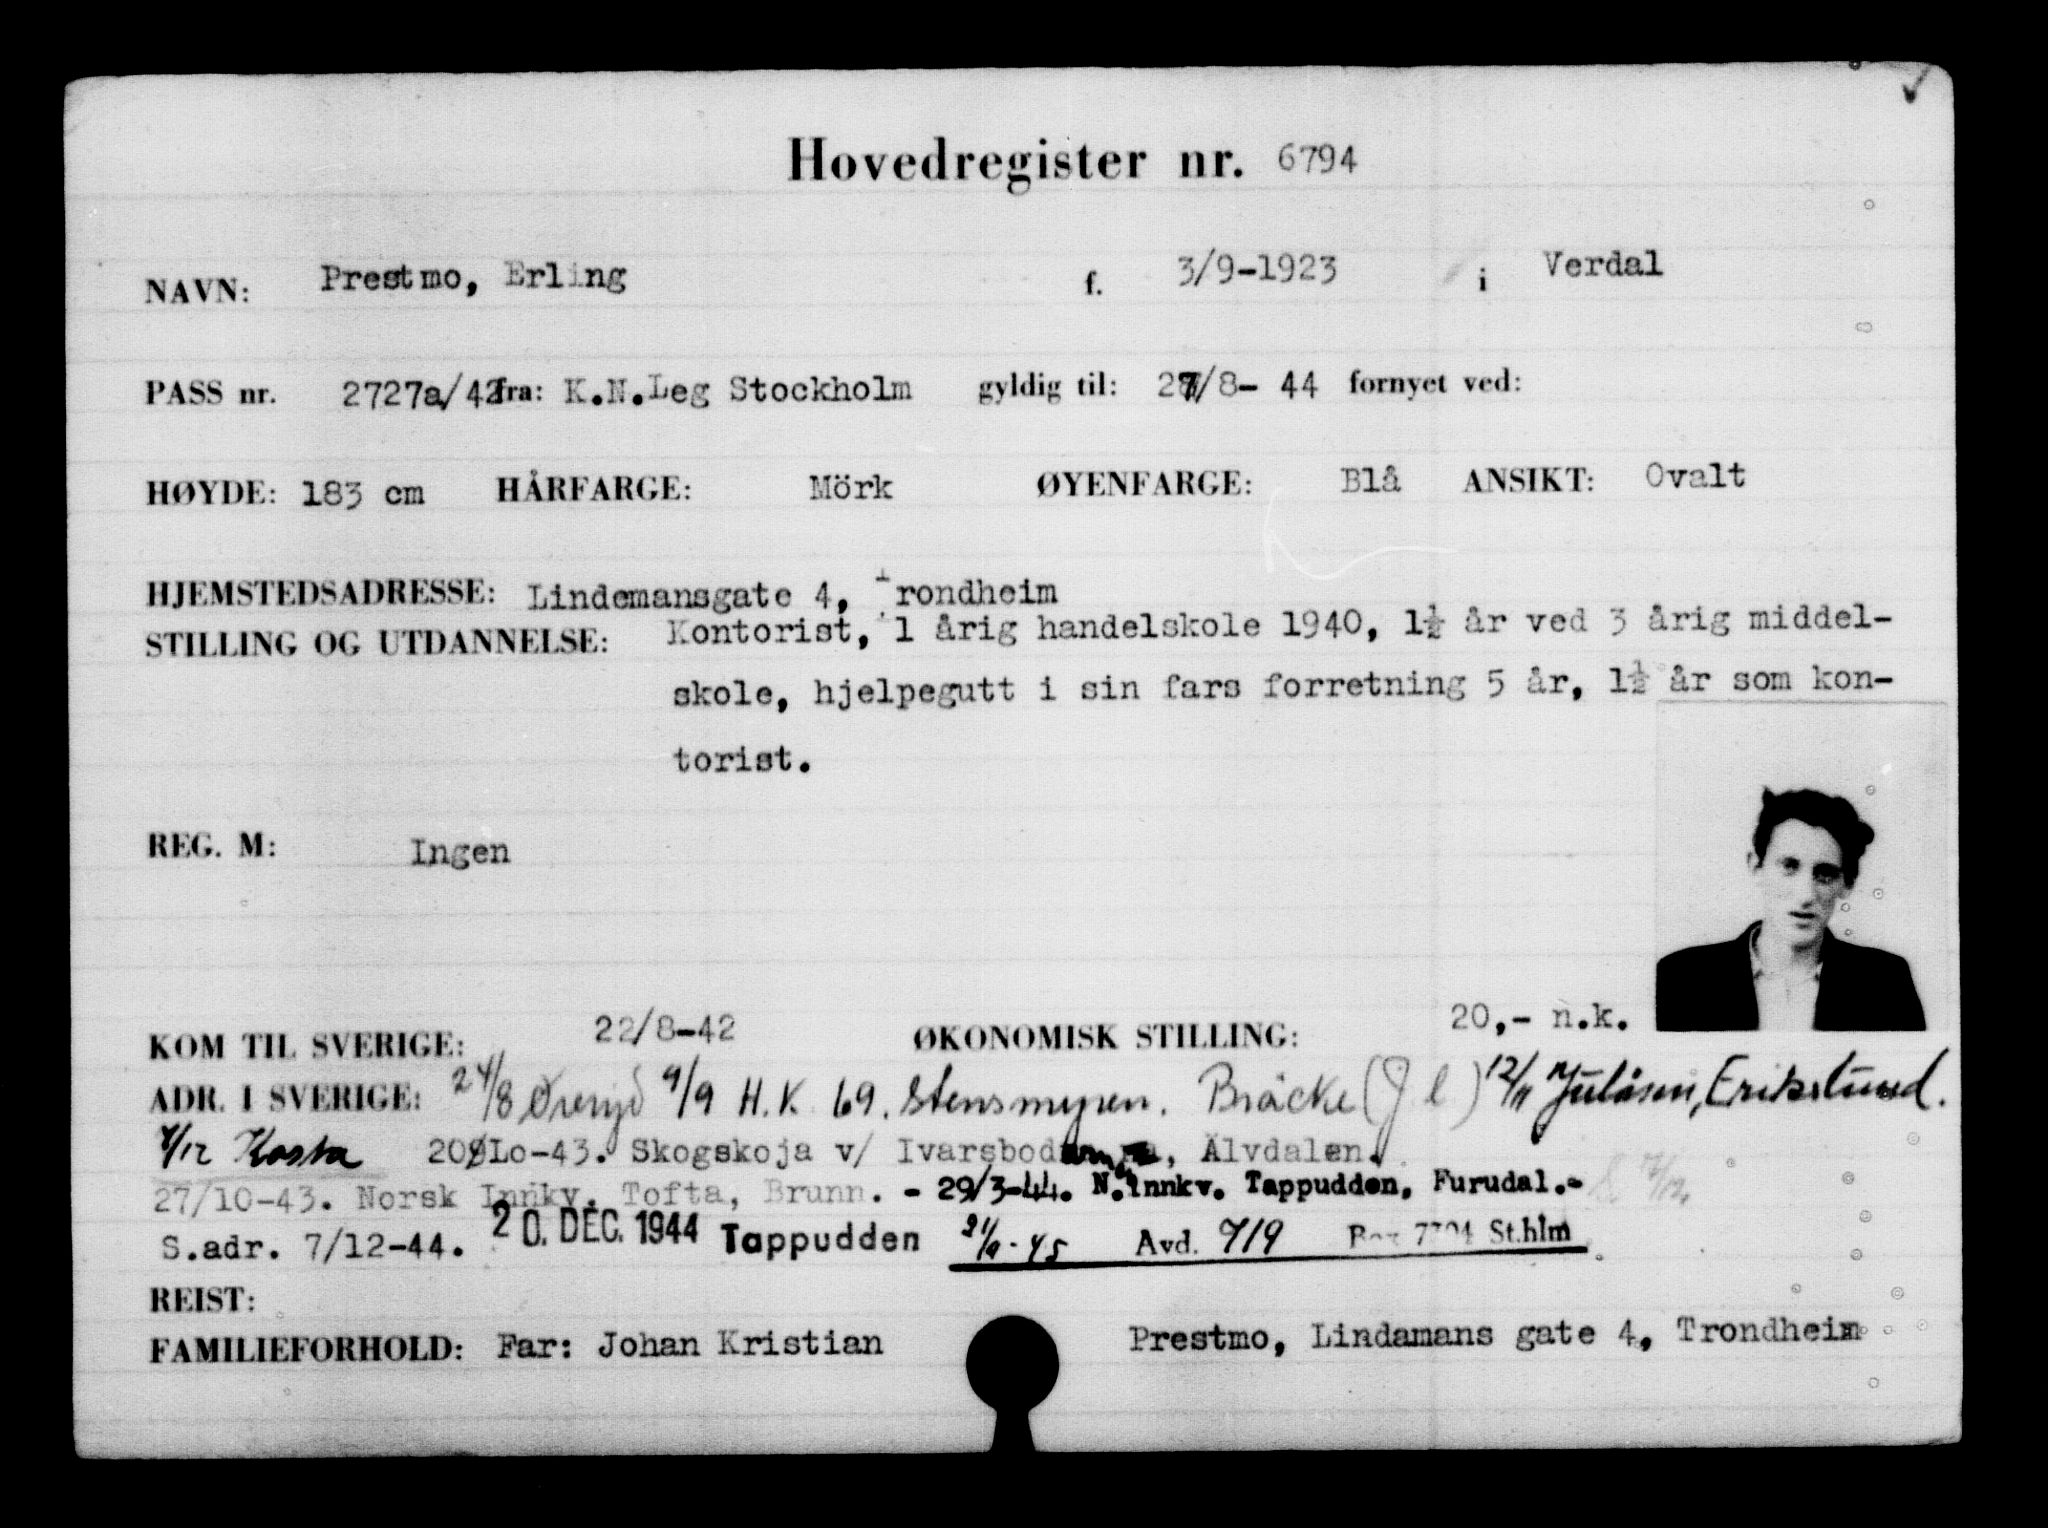 Hovedregister nr. 6794
NAVN: Prestmo, Erling f. 3/9-1923 i Verdal
PASS nr. 2727a/42 fra: K.N.Leg Stockholm gyldig til: 27/8- 44 fornyet ved:
HØYDE: 183 cm HÅRFARGE: Mörk ØYENFARGE: Blå ANSIKT: Ovalt
HJEMSTEDSADRESSE: Lindemansgate 4, Trondheim
STILLING OG UTDANNELSE: Kontorist, 1 årig handelskole 1940, 1½ år ved 3 årig middel-
skole, hjelpegutt i sin fars forretning 5 år, 1½ år som kon-
torist.
REG. M: Ingen
KOM TIL SVERIGE: 22/8-42 ØKONOMISK STILLING: 20,- n.k.
ADR. I SVERIGE: 24/8 9/9 H.K. 69. Stensmyren. Bräcke (J l) 12/11 Julåsen, Erikslund.
7/12 Kosta Skogskoja v/ , Älvdalen.
27/10-43. Norsk Innkv. Tofta, Brunn. - 29/3-44. N. Innkv. Tappudden, Furudal.-
S.adr. 7/12-44. 20. DEC. 1944 Tappudden Avd. 719 St.hlm
REIST:
FAMILIEFORHOLD: Far: Johan Kristian Prestmo, Lindamans gate 4, Trondheim